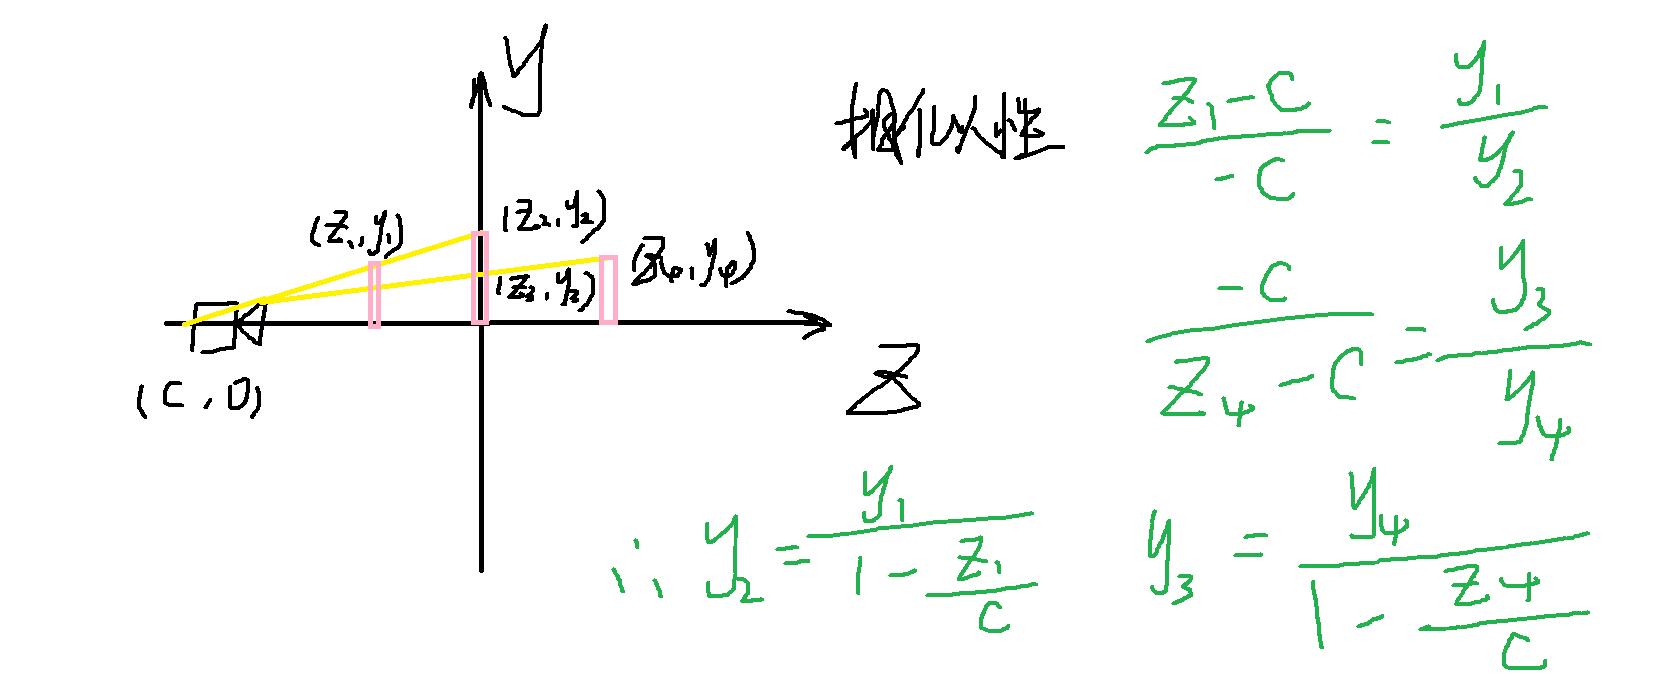 y
相似性
(z₁, y₁)
(z₂, y₂)
(z₃, y₃)
(z₄, y₄)
(C, 0)
z
(z₁ - C)/(-C) = y₁/y₂
(-C)/(z₄ - C) = y₃/y₄
∴ y₂ = y₁/(1 - z₁/C)
y₃ = y₄/(1 - z₄/C)